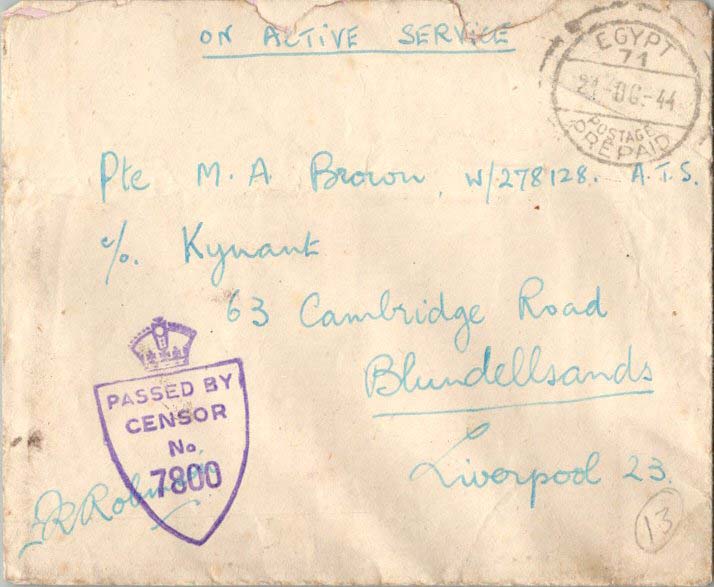 ON ACTIVE SERVICE
EGYPT
71
POSTAGE
PREPAID
Pte M. A Brown, W/278128. A.T.S.
c/o. Kynant
63 Cambridge Road
Blundellsands
Liverpool 23.
PASSED BY
CENSOR
No.
7800
13